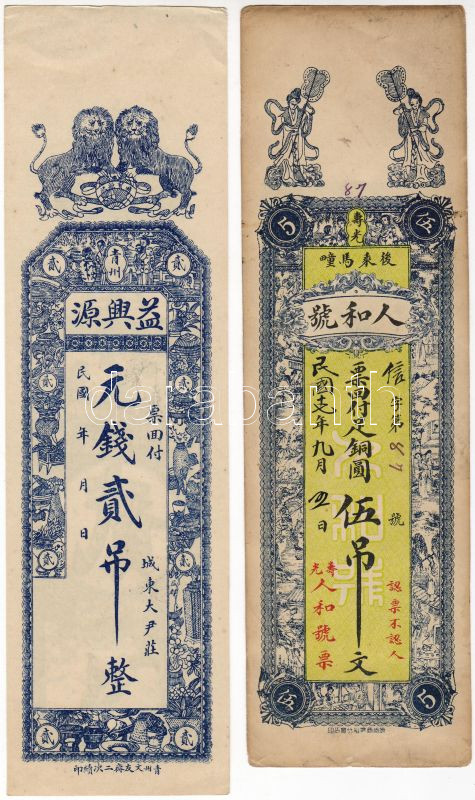 貳 青州 貳
益興源
票回付
城東大尹莊
元錢貳吊整
民國 年 月 日
貳 貳
貳 貳
貳 貳
青州文友齋二次續印
87
5 壽光 伍
後東馬疃
人和號
信字第 187 號
認票不認人
票回付足銅圓伍吊文
民國 年九月 五日
壽光人和號票
人和號
伍 5
darabanth